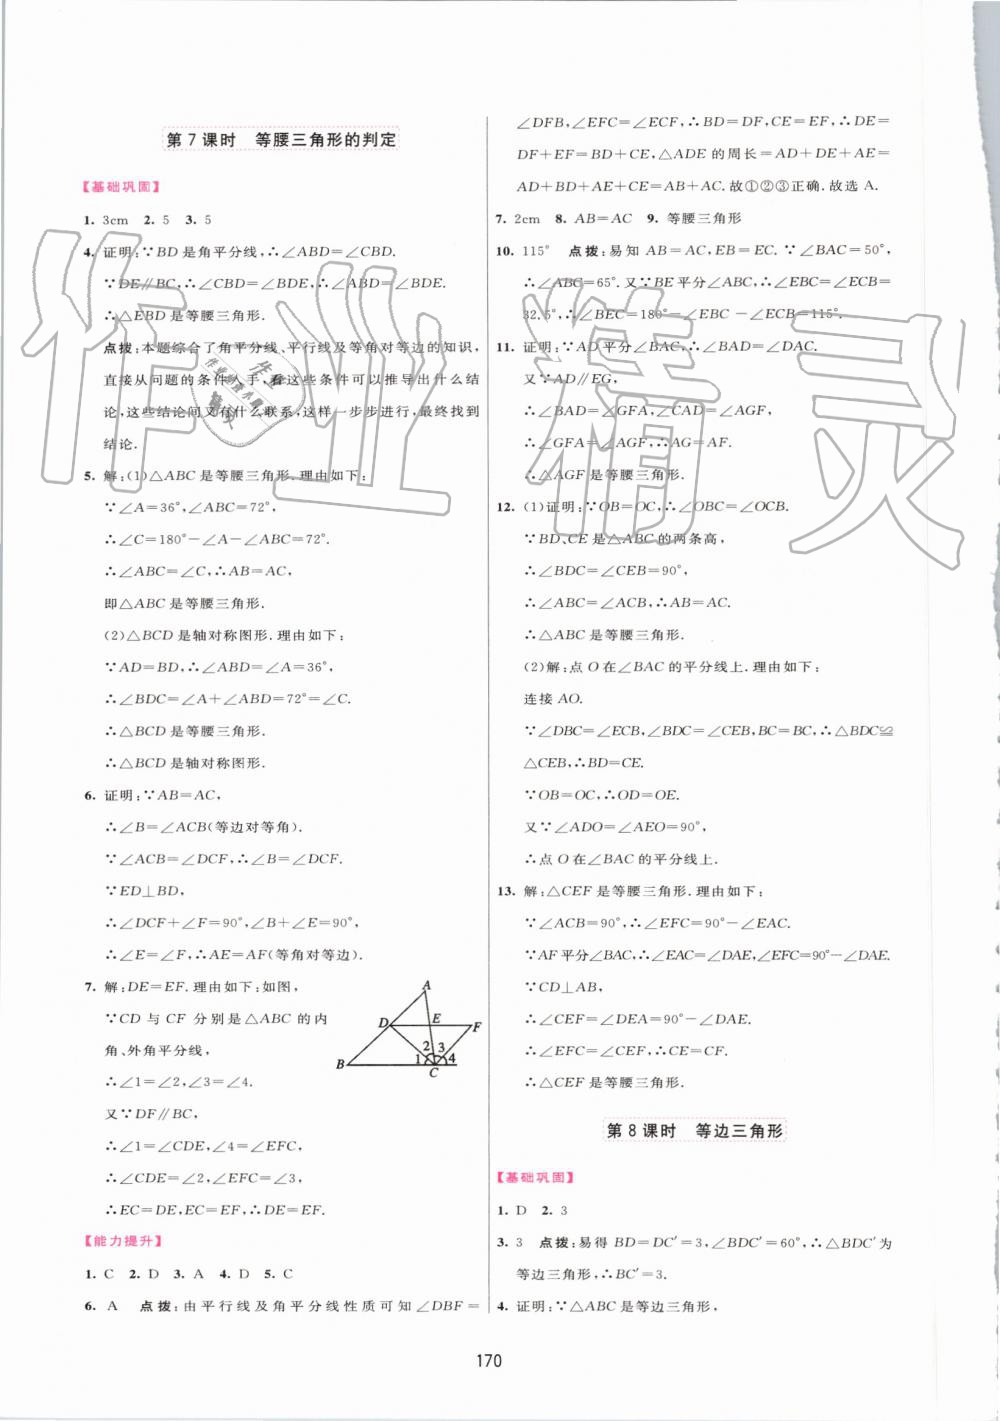 第7课时 等腰三角形的判定
【基础巩固】
1. 3cm 2. 5 3. 5
4. 证明:∵BD是角平分线,∴∠ABD=∠CBD.
∵DE∥BC,∴∠CBD=∠BDE,∴∠ABD=∠BDE.
∴△EBD是等腰三角形.
点拨:本题综合了角平分线、平行线及等角对等边的知识,
直接从问题的条件入手,看这些条件可以推导出什么结
论,这些结论间又有什么联系,这样一步步进行,最终找到
结论.
5. 解:(1)△ABC是等腰三角形.理由如下:
∵∠A=36°,∠ABC=72°,
∴∠C=180°-∠A-∠ABC=72°.
∴∠ABC=∠C,∴AB=AC,
即△ABC是等腰三角形.
(2)△BCD是轴对称图形.理由如下:
∵AD=BD,∴∠ABD=∠A=36°,
∴∠BDC=∠A+∠ABD=72°=∠C.
∴△BCD是等腰三角形.
∴△BCD是轴对称图形.
6. 证明:∵AB=AC,
∴∠B=∠ACB(等边对等角).
∵∠ACB=∠DCF,∴∠B=∠DCF.
∵ED⊥BD,
∴∠DCF+∠F=90°,∠B+∠E=90°.
∴∠E=∠F,∴AE=AF(等角对等边).
7. 解:DE=EF.理由如下:如图,
∵CD与CF分别是△ABC的内
角、外角平分线,
∴∠1=∠2,∠3=∠4.
又∵DF∥BC,
∴∠1=∠CDE,∠4=∠EFC.
∴∠CDE=∠2,∠EFC=∠3,
∴EC=DE,EC=EF,∴DE=EF.
A
D E F
2 3
1 4
B C
【能力提升】
1. C 2. D 3. A 4. D 5. C
6. A 点拨:由平行线及角平分线性质可知∠DBF=
∠DFB,∠EFC=∠ECF,∴BD=DF,CE=EF,∴DE=
DF+EF=BD+CE,△ADE的周长=AD+DE+AE=
AD+BD+AE+CE=AB+AC.故①②③正确.故选A.
7. 2cm 8. AB=AC 9. 等腰三角形
10. 115° 点拨:易知AB=AC,EB=EC.∵∠BAC=50°,
∴∠ABC=65°.又∵BE平分∠ABC,∴∠EBC=∠ECB=
32.5°,∴∠BEC=180°-∠EBC-∠ECB=115°.
11. 证明:∵AD平分∠BAC,∴∠BAD=∠DAC.
又∵AD∥EG,
∴∠BAD=∠GFA,∠CAD=∠AGF,
∴∠GFA=∠AGF,∴AG=AF.
∴△AGF是等腰三角形.
12. (1)证明:∵OB=OC,∴∠OBC=∠OCB.
∵BD、CE是△ABC的两条高,
∴∠BDC=∠CEB=90°,
∴∠ABC=∠ACB,∴AB=AC.
∴△ABC是等腰三角形.
(2)解:点O在∠BAC的平分线上.理由如下:
连接AO.
∵∠DBC=∠ECB,∠BDC=∠CEB,BC=BC,∴△BDC≌
△CEB,∴BD=CE.
∵OB=OC,∴OD=OE.
又∵∠ADO=∠AEO=90°,
∴点O在∠BAC的平分线上.
13. 解:△CEF是等腰三角形.理由如下:
∵∠ACB=90°,∴∠EFC=90°-∠EAC.
∵AF平分∠BAC,∴∠EAC=∠DAE,∠EFC=90°-∠DAE.
∵CD⊥AB,
∴∠CEF=∠DEA=90°-∠DAE.
∴∠EFC=∠CEF,∴CE=CF.
∴△CEF是等腰三角形.
第8课时 等边三角形
【基础巩固】
1. D 2. 3
3. 3 点拨:易得BD=DC′=3,∠BDC′=60°,∴△BDC′为
等边三角形,∴BC′=3.
4. 证明:∵△ABC是等边三角形,
170
作业精灵